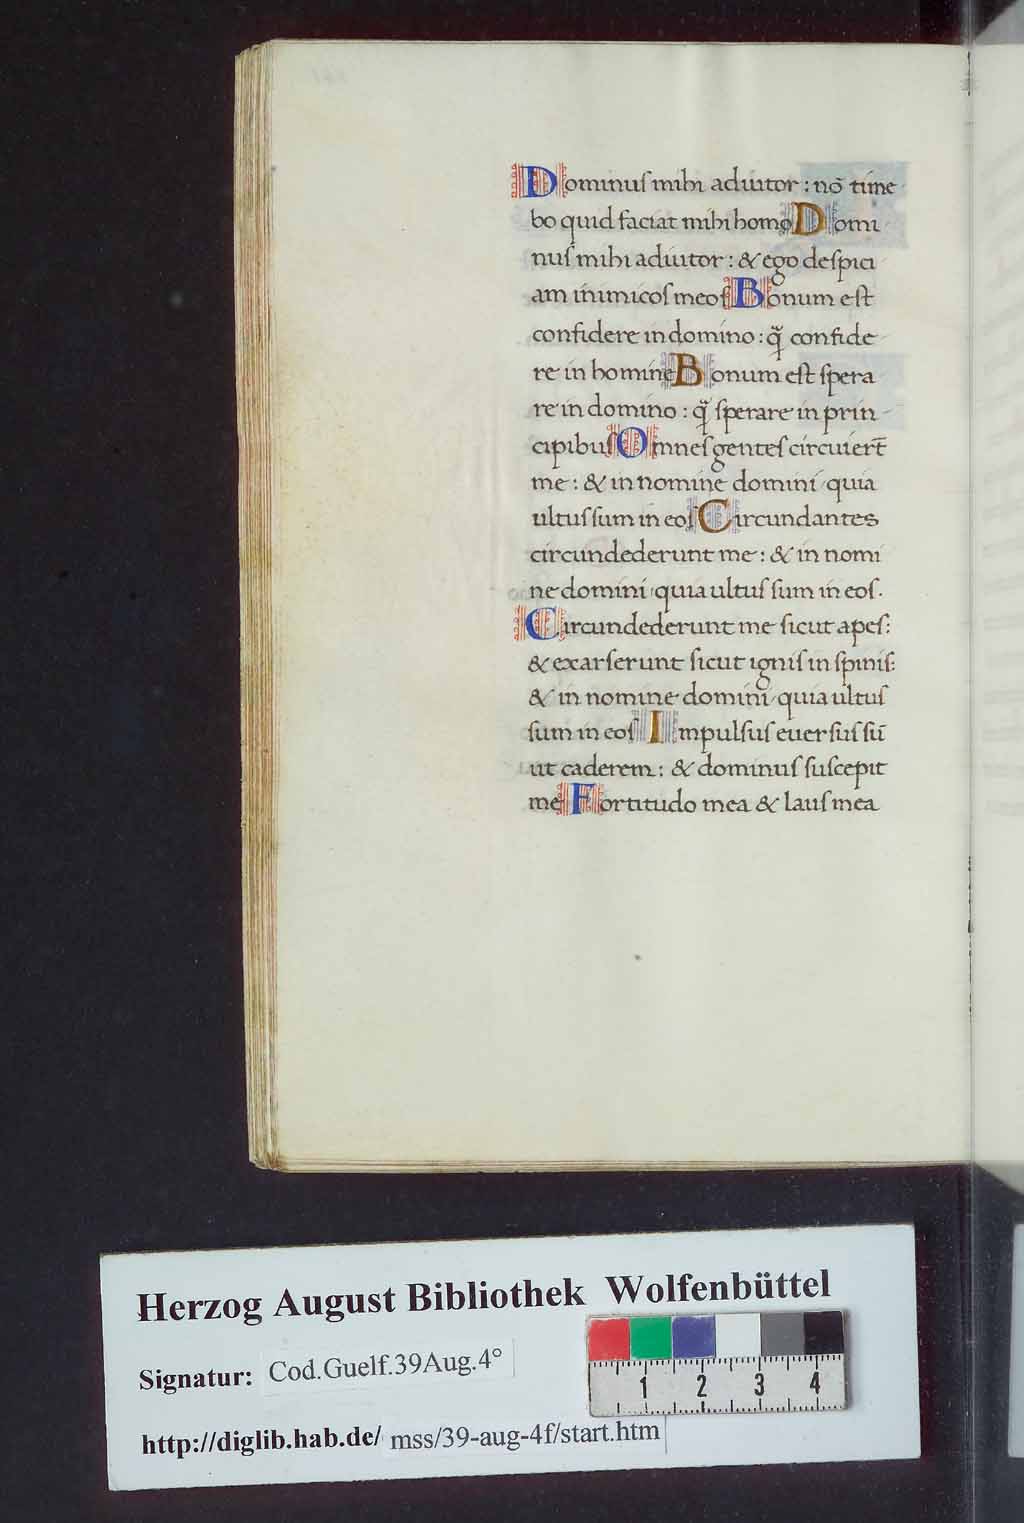 Dominuſ mihi adiutor : nō time
bo quid faciat mihi homo Domi
nuſ mihi adiutor : & ego deſpici
am inimicoſ meoſ Bonum eſt
confidere in domino : q̃ confide
re in homine Bonum eſt ſpera
re in domino : q̃ ſperare in prin
cipibuſ Omneſ genteſ circuiert̄
me : & in nomine domini quia
ultuſ ſum in eoſ Circundantes
circundederunt me : & in nomi
ne domini quia ultuſ ſum in eoſ.
Circundederunt me ſicut apeſ :
& exarſerunt ſicut igniſ in ſpiniſ :
& in nomine domini quia ultuſ
ſum in eoſ Impulſuſ euerſuſ ſū
ut caderem : & dominuſ ſuſcepit
me Fortitudo mea & lauſ mea
Herzog August Bibliothek Wolfenbüttel
Signatur: Cod.Guelf.39Aug.4°
http://diglib.hab.de/ mss/39-aug-4f/start.htm
1 2 3 4